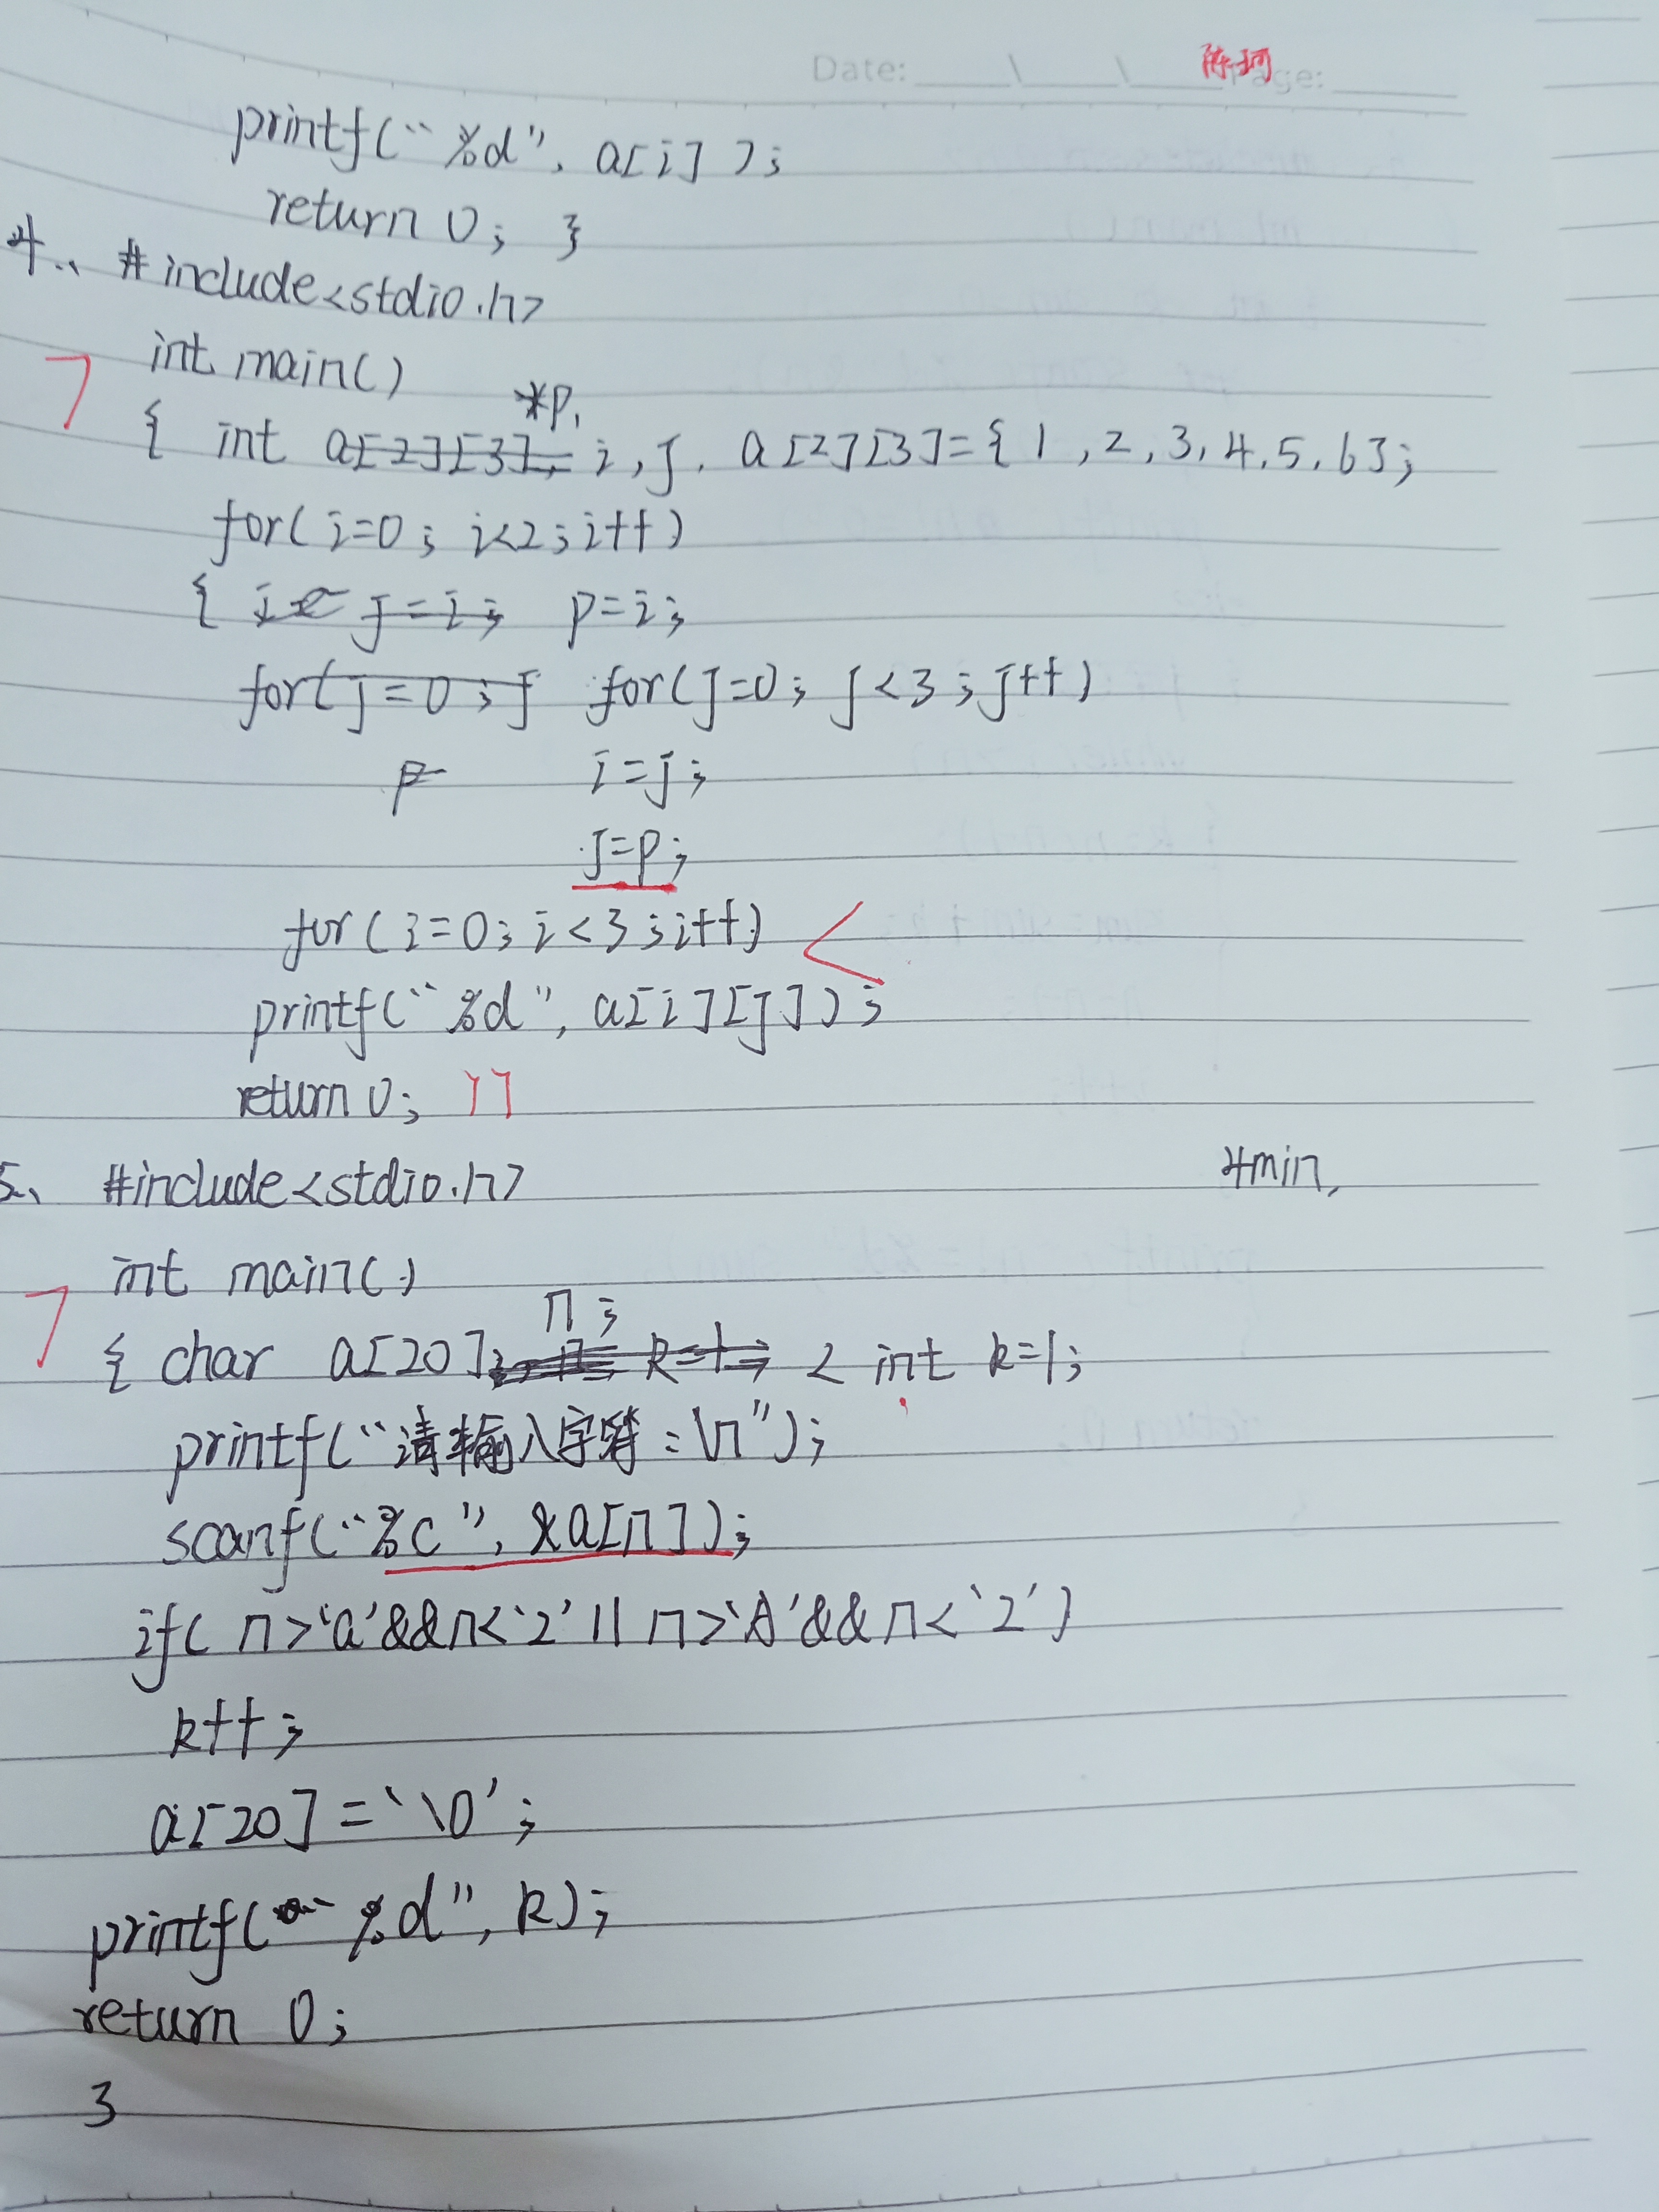 Date: \ \ Page:
printf("%d", a[i]);
return 0; }
4、 #include<stdio.h>
int main()
*p,
{ int a[2][3], i, j, a[2][3]={1,2,3,4,5,6};
for(i=0; i<2; i++)
{ j=i; p=i;
for(j=0; j for(j=0; j<3; j++)
p i=j;
j=p;
for(i=0; i<3; i++)
printf("%d", a[i][j]);
return 0; }}
5、 #include<stdio.h> 4min,
int main()
n;
{ char a[20], k=1; int k=1;
printf("请输入字符:\n");
scanf("%c", &a[n]);
if( n>'a'&&n<'z' || n>'A'&&n<'Z')
k++;
a[20]='\0';
printf("%d", k);
return 0;
}